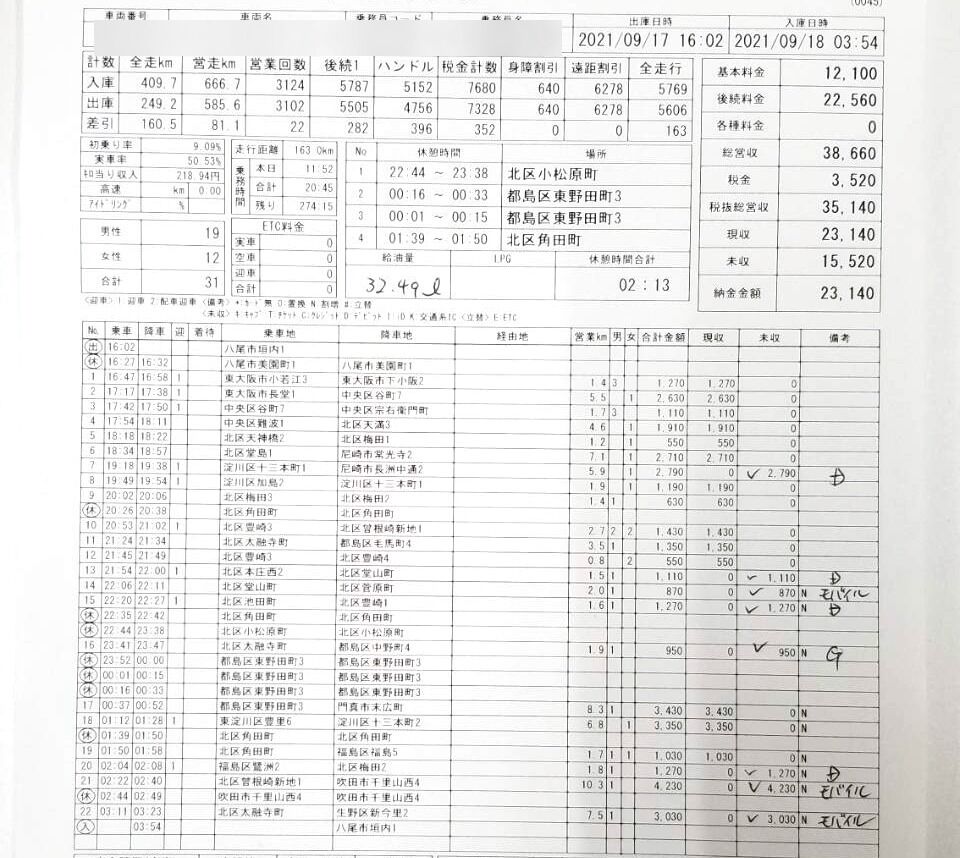 (0045)
車両番号 車両名 乗務員コード 乗務員名 出庫日時 入庫日時
2021/09/17 16:02 2021/09/18 03:54
計数 全走km 営走km 営業回数 後続1 ハンドル 税金計数 身障割引 遠距割引 全走行
入庫 409.7 666.7 3124 5787 5152 7680 640 6278 5769
出庫 249.2 585.6 3102 5505 4756 7328 640 6278 5606
差引 160.5 81.1 22 282 396 352 0 0 163
基本料金 12,100
後続料金 22,560
各種料金 0
総営収 38,660
税金 3,520
税抜総営収 35,140
現収 23,140
未収 15,520
納金金額 23,140
初乗り率 9.09%
実車率 50.53%
キロ当り収入 218.94円
高速 km 0.00
アイドリング %
走行距離 163.0km
乗務時間 本日 11:52
合計 20:45
残り 274:15
男性 19
女性 12
合計 31
ETC料金
実車 0
空車 0
迎車 0
合計 0
No 休憩時間 場所
1 22:44 ~ 23:38 北区小松原町
2 00:16 ~ 00:33 都島区東野田町3
3 00:01 ~ 00:15 都島区東野田町3
4 01:39 ~ 01:50 北区角田町
給油量 LPG 休憩時間合計
32.49ℓ 02:13
<迎車>1:迎車 2:配車迎車 <備考>*:カード無 O:置換 N:割増 #:立替
No. 乗車 降車 迎 着待 乗車地 降車地 経由地 営業km 男 女 合計金額 現収 未収 備考
出 16:02 八尾市垣内1
休 16:27 16:32 八尾市美園町1 八尾市美園町1
1 16:47 16:58 1 東大阪市小若江3 東大阪市下小阪2 1.4 3 1,270 1,270 0
2 17:17 17:38 1 東大阪市長堂1 中央区谷町7 5.5 1 2,630 2,630 0
3 17:42 17:50 1 中央区谷町7 中央区宗右衛門町 1.7 3 1,110 1,110 0
4 17:54 18:11 中央区難波1 北区天満3 4.6 1 1,910 1,910 0
5 18:18 18:22 北区天神橋2 北区梅田1 1.2 1 550 550 0
6 18:34 18:57 北区堂島1 尼崎市常光寺2 7.1 1 2,710 2,710 0
7 19:18 19:38 1 淀川区十三本町1 尼崎市長洲中通2 5.9 1 2,790 0 ✓ 2,790 D
8 19:49 19:54 1 淀川区加島2 淀川区十三本町1 1.9 1 1,190 1,190 0
9 20:02 20:06 北区梅田3 北区梅田2 1.4 1 630 630 0
休 20:26 20:38 北区角田町 北区角田町
10 20:53 21:02 1 北区豊崎3 北区曽根崎新地1 2.7 2 2 1,430 1,430 0
11 21:24 21:34 北区太融寺町 都島区毛馬町4 3.5 1 1,350 1,350 0
12 21:45 21:49 北区豊崎3 北区豊崎4 0.8 2 550 550 0
13 21:54 22:00 1 北区本庄西2 北区堂山町 1.5 1 1,110 0 ✓ 1,110 D
14 22:06 22:11 北区堂山町 北区菅原町 2.0 1 870 0 ✓ 870 N モバイル
15 22:20 22:27 1 北区池田町 北区豊崎1 1.6 1 1,270 0 ✓ 1,270 N D
休 22:35 22:42 北区角田町 北区角田町
休 22:44 23:38 北区小松原町 北区小松原町
16 23:41 23:47 北区太融寺町 都島区中野町4 1.9 1 950 0 ✓ 950 N G
休 23:52 00:00 都島区東野田町3 都島区東野田町3
休 00:01 00:15 都島区東野田町3 都島区東野田町3
休 00:16 00:33 都島区東野田町3 都島区東野田町3
17 00:37 00:52 都島区東野田町3 門真市末広町 8.3 1 3,430 3,430 0 N
18 01:12 01:28 1 東淀川区豊里6 淀川区十三本町2 6.8 1 3,350 3,350 0 N
休 01:39 01:50 北区角田町 北区角田町
19 01:50 01:58 北区角田町 福島区福島5 1.7 1 1 1,030 1,030 0 N
20 02:04 02:08 1 福島区鷺洲2 北区梅田2 1.8 1 1,270 0 ✓ 1,270 N D
21 02:22 02:40 北区曽根崎新地1 吹田市千里山西4 10.3 1 4,230 0 ✓ 4,230 N モバイル
休 02:44 02:49 吹田市千里山西4 吹田市千里山西4
22 03:11 03:23 北区太融寺町 生野区新今里2 7.5 1 3,030 0 ✓ 3,030 N モバイル
入 03:54 八尾市垣内1